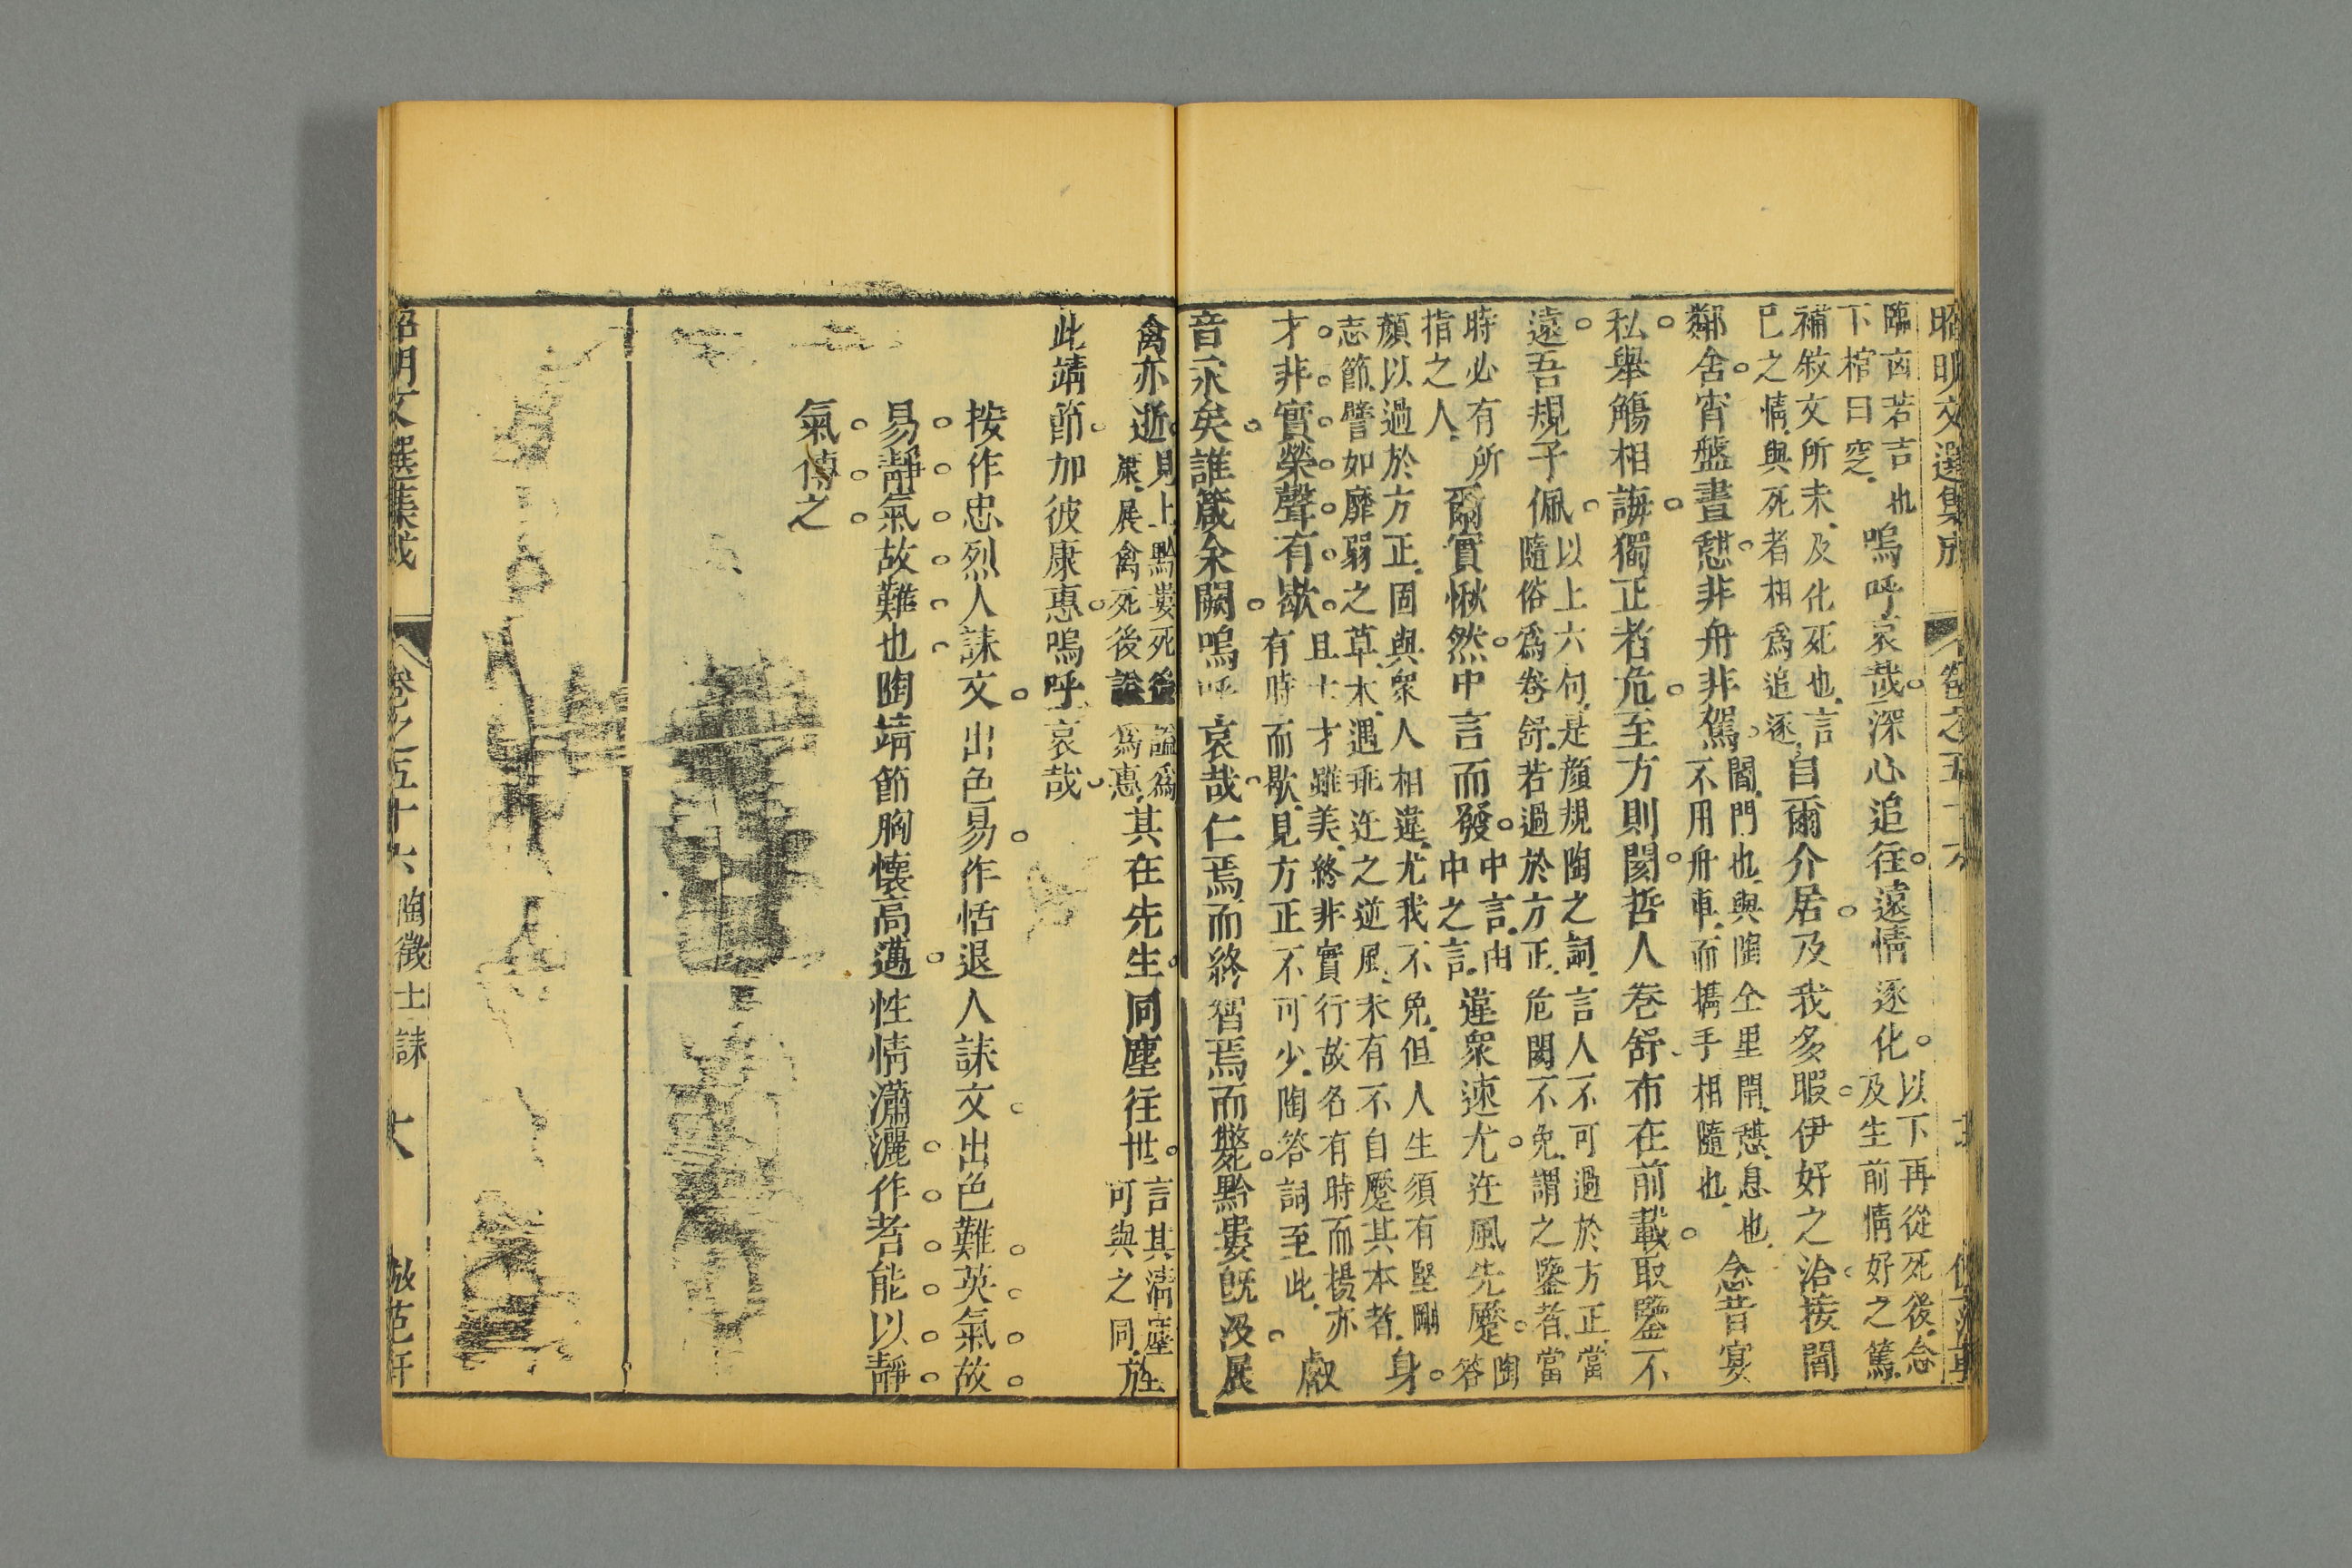 昭明文選集成 卷之五十六
臨㐫若吉也
下棺曰窆
嗚呼哀哉深心追往遠情逐化
以下再從死後念
及生前情好之篤
補敘文所未及化死也言
已之情與死者相爲追逐
自爾介居及我多暇伊好之洽接閻
鄰舍宵盤晝憩非舟非駕
閻門也與陶仝里閈憩息也
不用舟車而擕手相隨也
念昔宴
私舉觴相誨獨正者危至方則閡哲人卷舒布在前載取鑒不
遠吾規子佩
以上六句是顏規陶之詞言人不可過於方正當
隨俗爲卷舒若過於方正危閡不免謂之鑒者當
時必有所
指之人
爾實愀然中言而發
中言由
中之言
違衆速尤迕風先蹷
陶
答
顏以過於方正固與衆人相違尤我不免但人生須有堅剛
志節譬如靡弱之草木遇乖迕之逆風未有不自蹷其本者
身
才非實榮聲有歇
且士才雖美終非實行故名有時而揚亦
有時而歇見方正不可少陶答詞至此
叡
音永矣誰箴余闕嗚呼哀哉仁焉而終智焉而斃黔婁旣沒展
禽亦逝
則上黔婁死後謚爲
康展禽死後謚爲惠
其在先生同塵往世
言其清塵
可與之同
旌
此靖節加彼康惠嗚呼哀哉
按作忠烈人誄文出色易作恬退人誄文出色難英氣故
易靜氣故難也陶靖節胸懷高邁性情瀟灑作者能以靜
氣傳之
昭明文選集成 卷之五十六 陶徵士誄 大 倣范軒